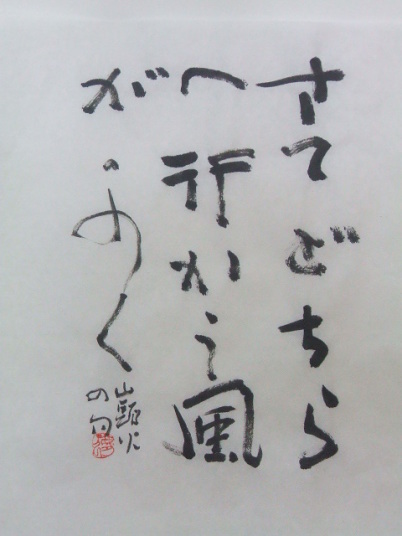 さてどちら
へ行かう風
がふく
山頭火
の句